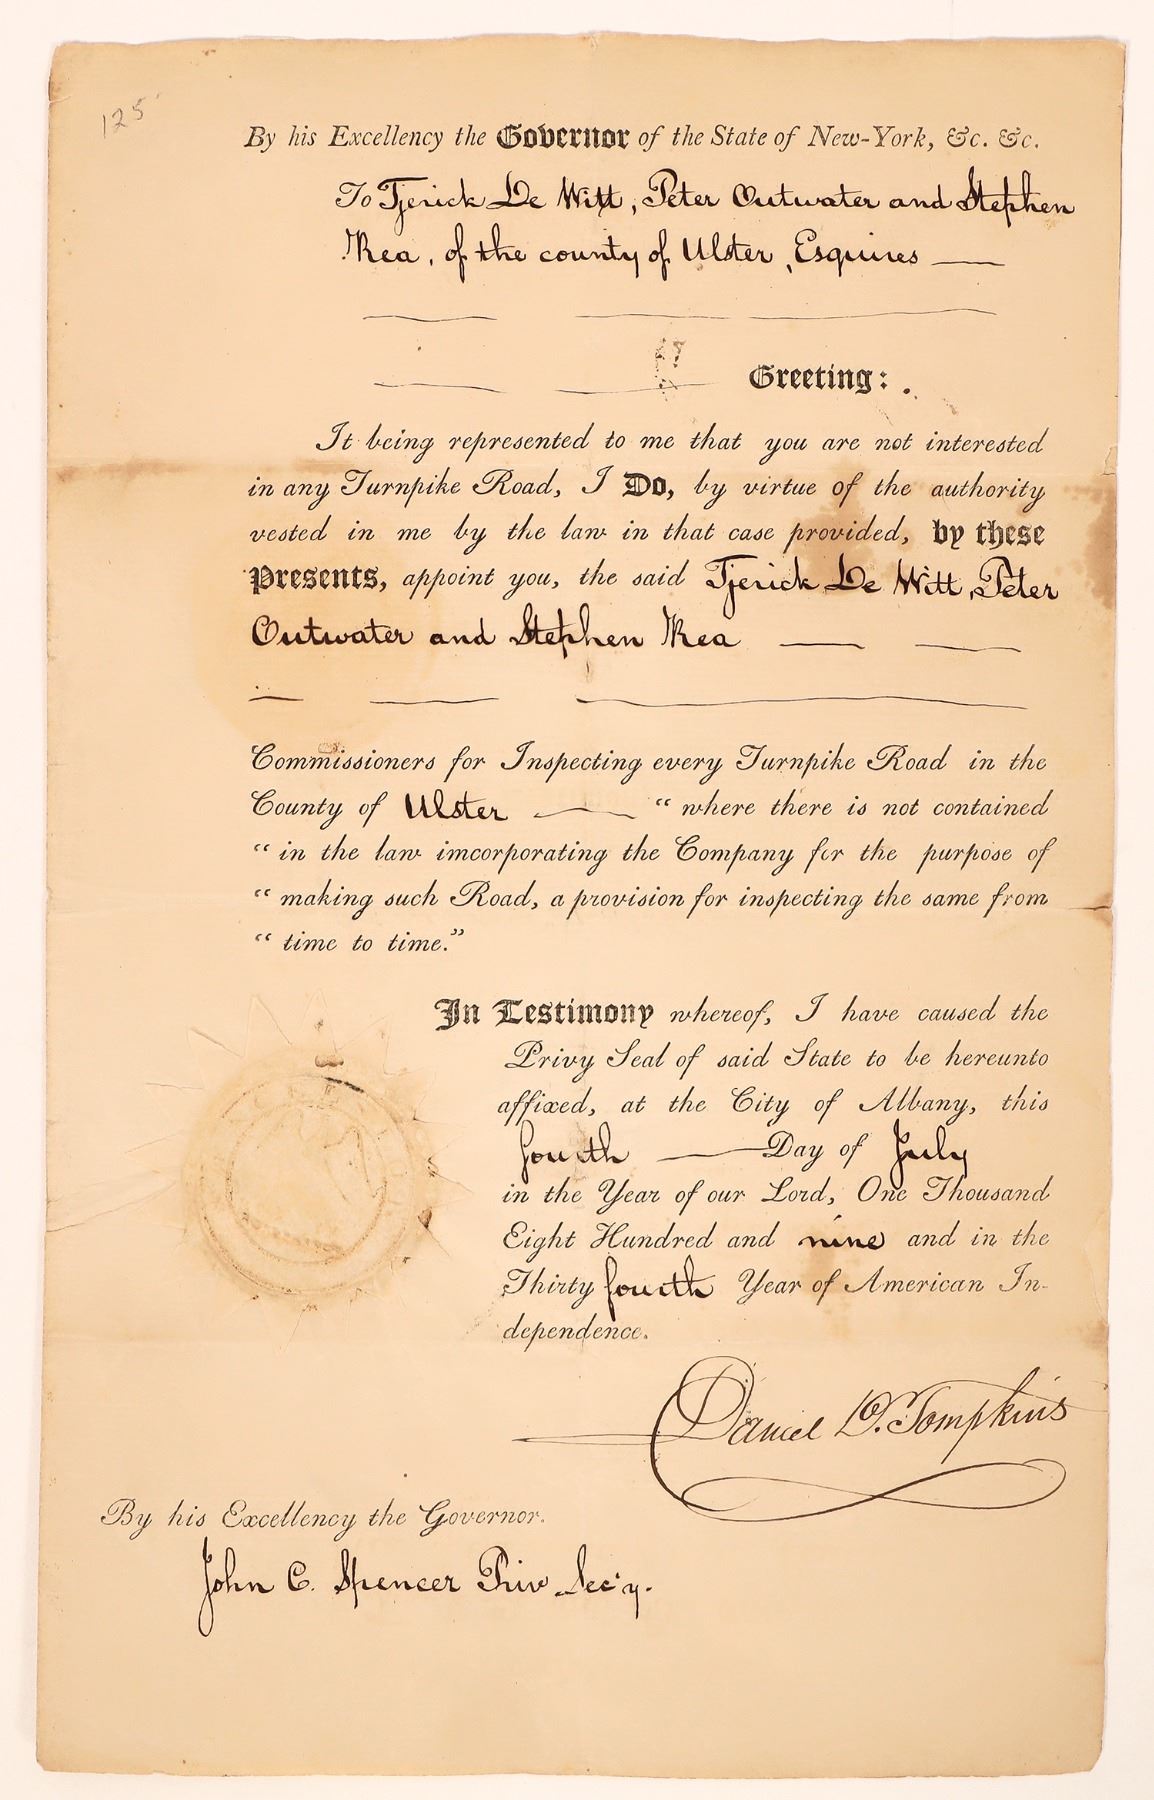 125
By his Excellency the Governor of the State of New-York, &c. &c.
To Tjerick De Witt, Peter Outwater and Stephen
Rea, of the county of Ulster, Esquires
Greeting:
It being represented to me that you are not interested
in any Turnpike Road, I Do, by virtue of the authority
vested in me by the law in that case provided, by these
Presents, appoint you, the said Tjerick De Witt, Peter
Outwater and Stephen Rea
Commissioners for Inspecting every Turnpike Road in the
County of Ulster “ where there is not contained
“ in the law imcorporating the Company for the purpose of
“ making such Road, a provision for inspecting the same from
“ time to time.”
In Testimony whereof, I have caused the
Privy Seal of said State to be hereunto
affixed, at the City of Albany, this
fourth Day of July
in the Year of our Lord, One Thousand
Eight Hundred and nine and in the
Thirty fourth Year of American In-
dependence.
Daniel D. Tompkins
By his Excellency the Governor.
John C. Spencer Priv Sec'y.